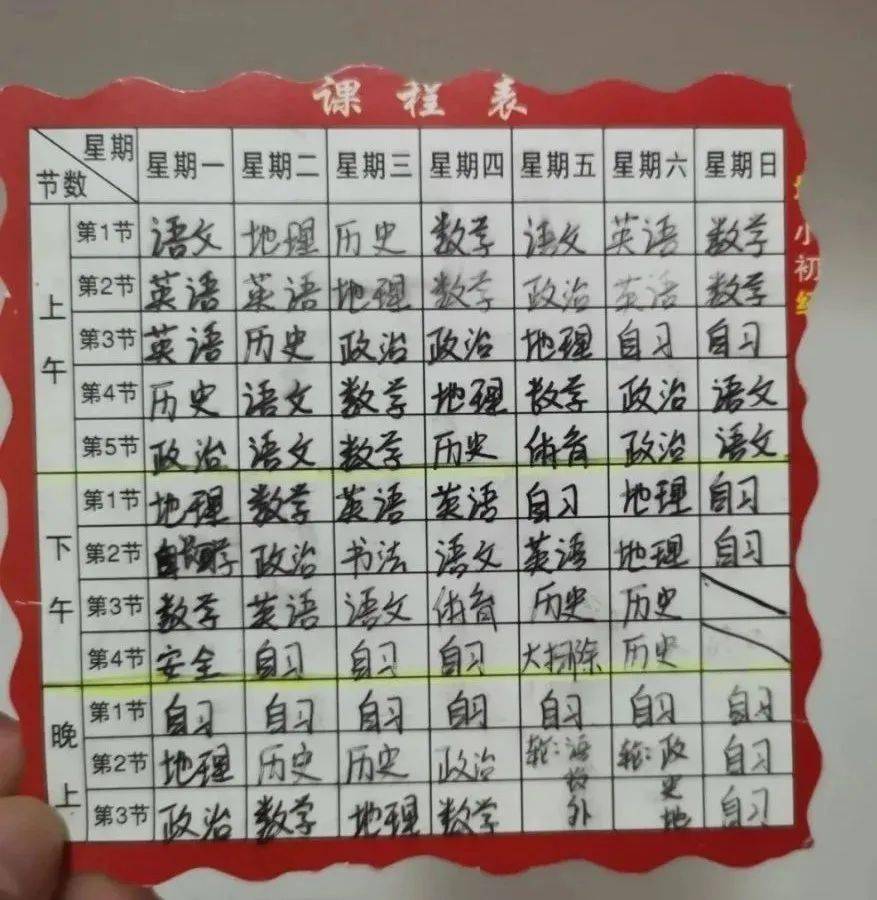 课程表
星期 节数 星期一 星期二 星期三 星期四 星期五 星期六 星期日
上午
第1节 语文 地理 历史 数学 语文 英语 数学
第2节 英语 英语 地理 数学 政治 英语 数学
第3节 英语 历史 政治 政治 地理 自习 自习
第4节 历史 语文 数学 地理 数学 政治 语文
第5节 政治 语文 数学 历史 体育 政治 语文
下午
第1节 地理 数学 英语 英语 自习 地理 自习
第2节 政治 书法 语文 英语 地理 自习
第3节 数学 英语 语文 体育 历史 历史
第4节 安全 自习 自习 自习 大扫除 历史
晚上
第1节 自习 自习 自习 自习 自习 自习 自习
第2节 地理 历史 历史 政治 轮:语 轮:政 自习
第3节 政治 数学 地理 数学 数外 史地 自习
小
初